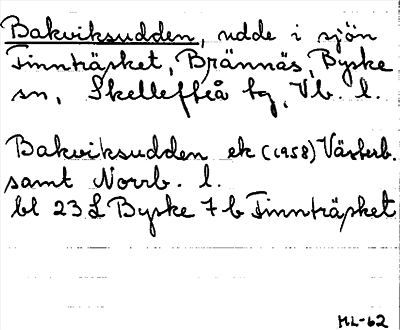 Bakviksudden, udde i sjön
Finnträsket, Brännäs, Byske
sn, Skellefteå tg, Vb. l.
Bakviksudden ek (1958) Västerb.
samt Norrb. l.
bl 23 L Byske 7 b Finnträsket
ML-62